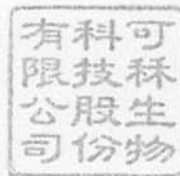 可秝生物
科技股份
有限公司